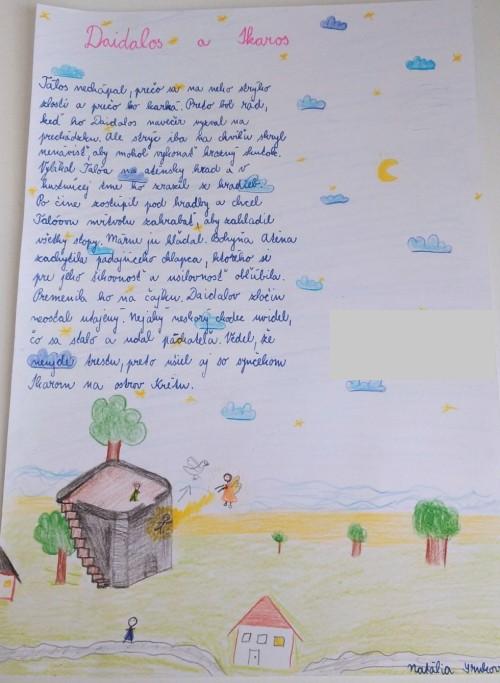 Daidalos a Ikaros
Tálos nechápal, prečo sa na neho strýko
zlostí a prečo ho karhá. Preto bol rád,
keď ho Daidalos navečer vyzval na
prechádzku. Ale strýc iba na chvíľu skryl
nenávisť, aby mohol vykonať hrozný skutok.
Vylákal Tálóa na aténsky hrad a v
hustnúcej tme ho zrazil z hradieb.
Po čine zostúpil pod hradby a chcel
Talóovu mŕtvolu zahrabať, aby zahladil
všetky stopy. Márne ju hľadal. Bohyňa Aténa
zachytila padajúceho chlapca, ktorého si
pre jeho šikovnosť a usilovnosť obľúbila.
Premenila ho na čajku. Daidalov zločin
neostal utajený. Nejaký neskorý chodec uvidel,
čo sa stalo a udal páchateľa. Vedel, že
neujde trestu, preto ušiel aj so synčekom
Ikarom na ostrov Krétu.
Natália